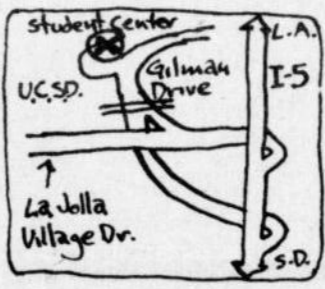 Student Center
L.A.
U.C.S.D.
Gilman
Drive
I-5
La Jolla
Village Dr.
S.D.